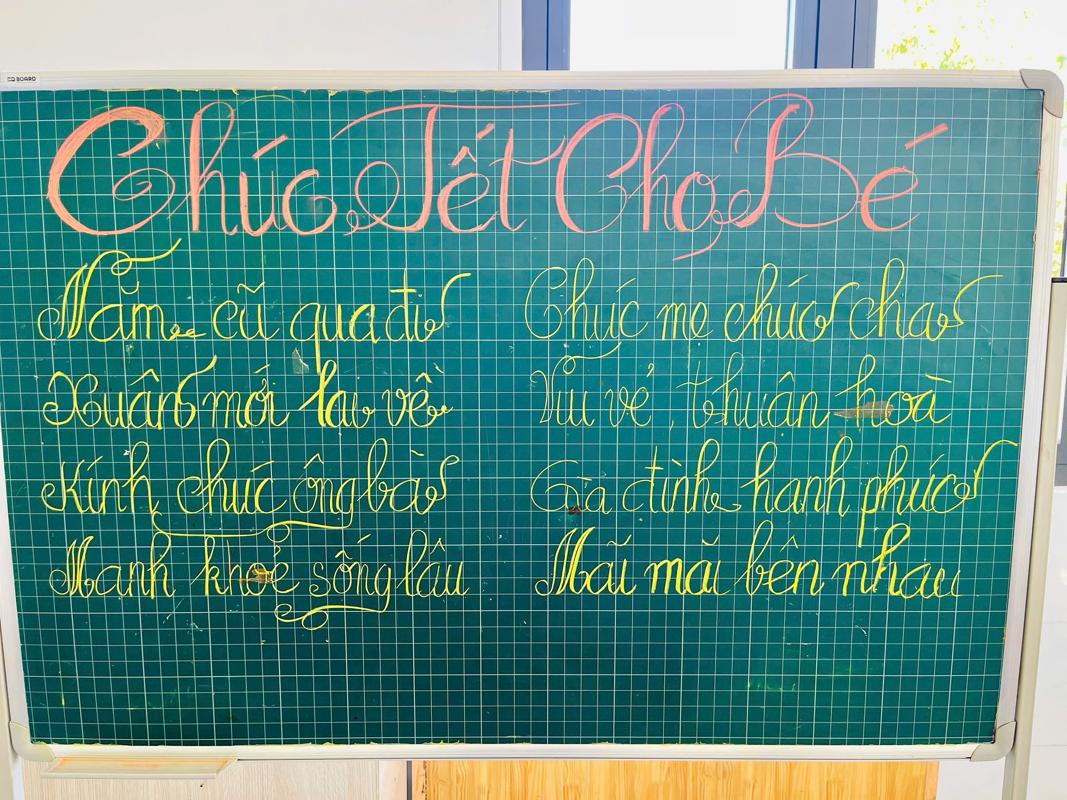 CQ BOARD
Chúc Tết Cho Bé
Năm cũ qua đi
Xuân mới lại về
Kính chúc ông bà
Mạnh khoẻ sống lâu
Chúc mẹ chúc cha
Vui vẻ, thuận hoà
Gia đình hạnh phúc
Mãi mãi bên nhau